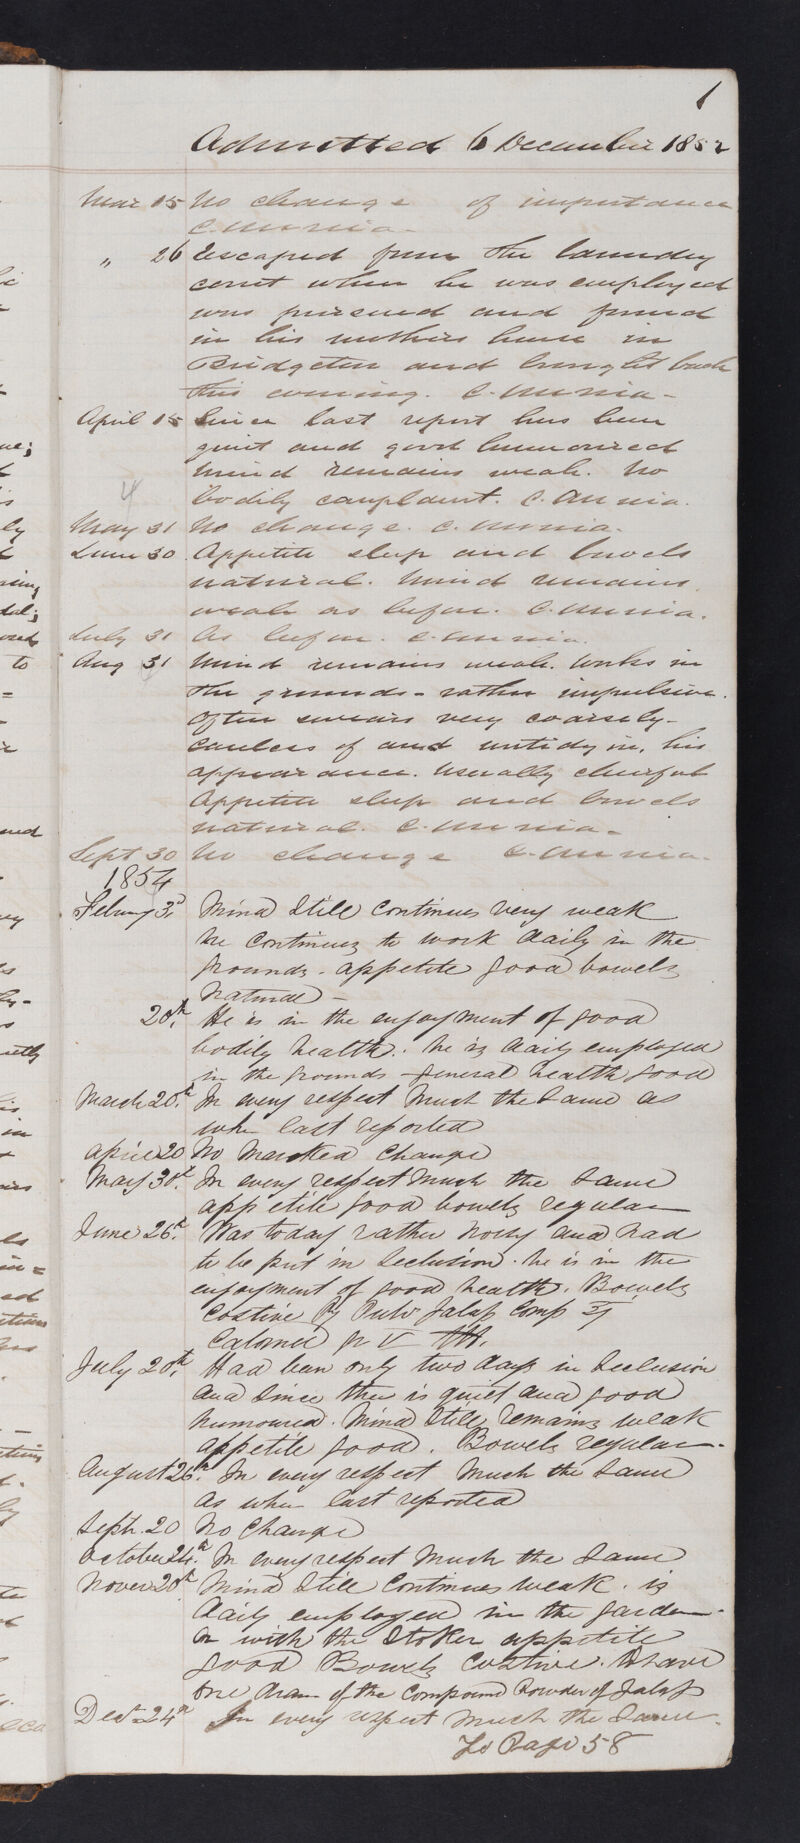 1
Admitted 6 December 1852
Mar 15 No change of importance
" 26 Escaped from the laundry
court when he was employed
was pursued and found
in his mothers house in
Bridgeton and brought back
this evening.
April 15 Since last report has been
quiet and good humoured
mind remains weak. No
bodily complaint.
May 31 No change.
June 30 Appetite sleep and bowels
natural. Mind remains
weak as before.
July 31 As before.
Aug 31 Mind remains weak. Works in
the grounds - rather impulsive.
Often swears very coarsely -
careless of and untidy in, his
appearance. Usually cheerful
Appetite sleep and bowels
natural.
Sept 30 No change
1854
Febury 3d Mind still continues very weak
he continues to work daily in the
grounds. appetite good bowels
natural -
20th. He is in the enjoyment of good
bodily health. he is daily employed
in the grounds - general health good
March 20th. In every respect much the same as
when last reported
April 20 No marked change
May 30th. In every respect much the same
appetite good bowels regular
June 26th. Was today rather noisy and had
to be put in seclusion. he is in the
enjoyment of good health. Bowels
costive Rx Pulv Jalap Comp ʒj
Calomel gr V
July 20th. Had been only two days in seclusion
and since then is quiet and good
humoured. Mind still remains weak
appetite good. Bowels regular.
August 26th. In every respect much the same
as when last reported
Septr. 20 No change
October 24th. In every respect much the same
Nover 20th Mind still continues weak. is
daily employed in the garden
or with the Stoker appetite
good Bowels costive. To have
one dram of the compound Powder of Jalap
Decr 24th In every respect much the same.
To Page 58